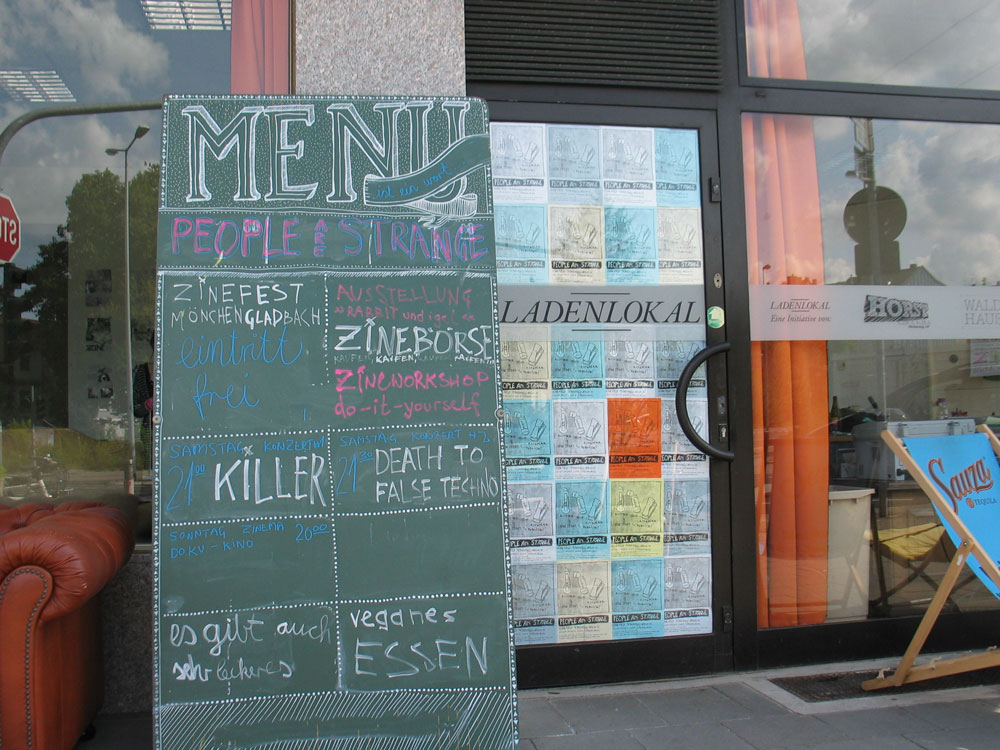 MENU
ist ein wort
PEOPLE ARE STRANGE
ZINEFEST
MÖNCHENGLADBACH
eintritt
frei
AUSSTELLUNG
RABBIT und igel
ZINEBÖRSE
KAUFEN, KAUFEN,
ZINEWORKSHOP
do-it-yourself
SAMSTAG KONZERT
21:00 KILLER
SAMSTAG KONZERT
21:30 DEATH TO
FALSE TECHNO
SONNTAG ZINEMA 20:00
DOKU-KINO
es gibt auch
sehr leckeres
veganes
ESSEN
LADENLOKAL
PEOPLE ARE STRANGE
LADENLOKAL
Eine Initiative von:
HORST
STO
Sauza
TEQUILA